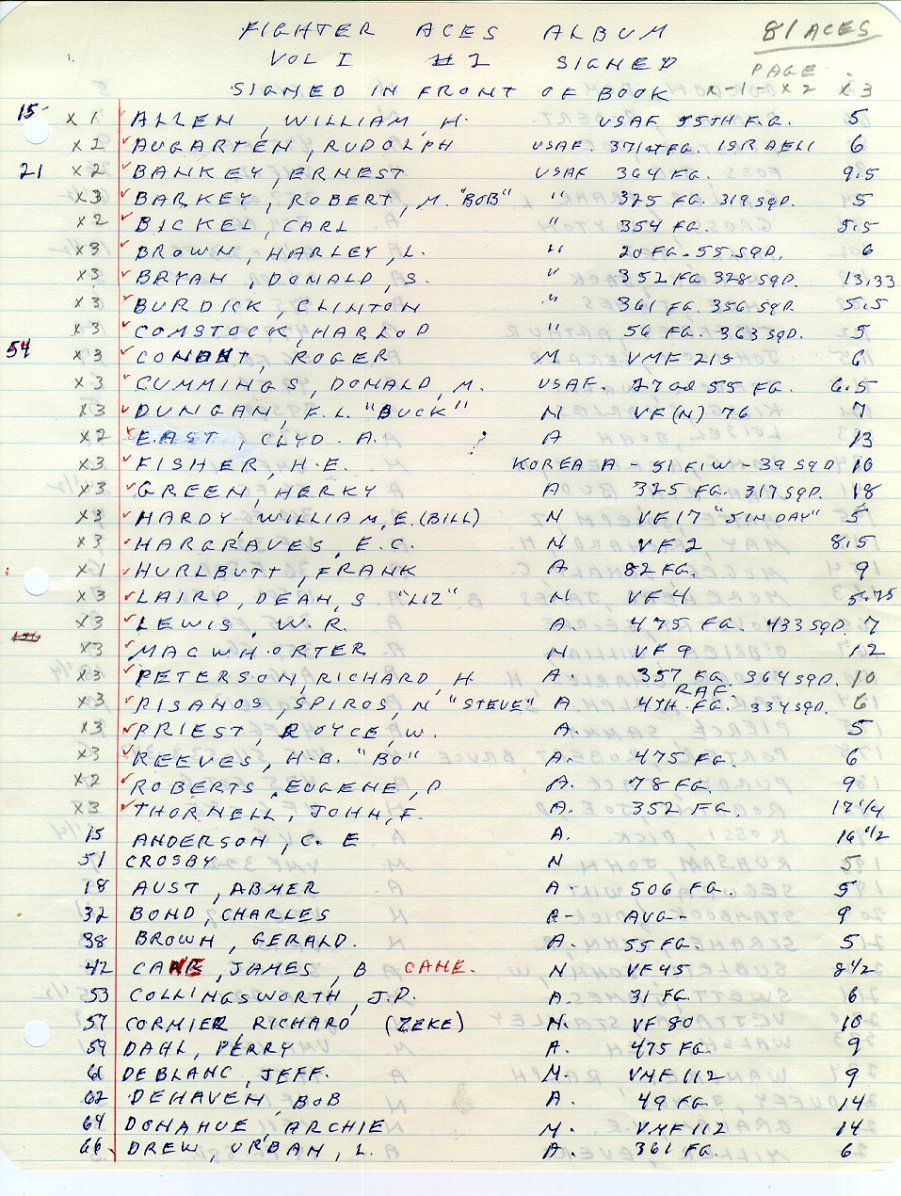 FIGHTER ACES ALBUM 81 ACES
VOL I #1 SIGNED PAGE
SIGNED IN FRONT OF BOOK x-1- x2 x3
15 x1 ALLEN, WILLIAM, H. USAF 55TH F.G. 5
x2 AUGARTEN, RUDOLPH USAF. 371st FG. ISRAELI 6
21 x2 BANKEY, ERNEST USAF 364 FG. 9.5
x3 BARKEY, ROBERT, M. "BOB" " 325 FG. 319 SQD. 5
x2 BICKEL, CARL " 354 FG. 5.5
x3 BROWN, HARLEY, L. " 20 FG. 55 SQD. 6
x3 BRYAN, DONALD, S. " 352 FG 328 SQD. 13,33
x3 BURDICK, CLINTON " 361 FG. 356 SQD. 5.5
x3 COMSTOCK, HARLOD " 56 FG. 363 SQD. 5
54 x3 CONANT, ROGER M VMF 215 6
x3 CUMMINGS, DONALD, M. USAF. 27 55 FG. 6.5
x3 DUNGAN, F.L. "BUCK" N VF(N) 76 7
x2 EAST, CLYD. A. A 13
x3 FISHER, H.E. KOREA A - 51 FIW - 39 SQD 10
x3 GREEN, HERKY A 325 FG. 317 SQD. 18
x3 HARDY, WILLIAM, E. (BILL) N VF17 "5 IN DAY" 5
x3 HARGRAVES, E.C. N VF2 8.5
x1 HURLBUTT, FRANK A 82 FG. 9
x3 LAIRD, DEAN, S. "LIZ" N VF4 5.75
x3 LEWIS, W.R. A. 475 FG. 433 SQD. 7
x3 MACWHORTER N VF9 12
x3 PETERSON, RICHARD, H A. 357 FG. 364 SQD. 10
x3 PISANOS, SPIROS, N "STEVE" A. 4TH. FG. RAF. 334 SQD. 6
x3 PRIEST, ROYCE, W. A. 5
x3 REEVES, H.B. "BO" A. 475 FG. 6
x2 ROBERTS, EUGENE, P A. 78 FG. 9
x3 THORNELL, JOHN, F. A. 352 FG. 17 1/4
15 ANDERSON, C. E A. 16 1/2
51 CROSBY N 5
18 AUST, ABNER A 506 FG. 5
32 BOND, CHARLES A- AVG- 9
38 BROWN, GERALD. A. 55 FG. 5
42 CANE, JAMES, B CANE. N VF45 8 1/2
53 COLLINGSWORTH, J.D. A. 31 FG. 6
57 CORMIER, RICHARD (ZEKE) N. VF 80 10
59 DAHL, PERRY A. 475 FG. 9
61 DEBLANC, JEFF. M. VMF 112 9
62 DEHAVEN, BOB A. 49 FG. 14
64 DONAHUE ARCHIE M. VMF 112 14
66 DREW, URBAN, L. A. 361 FG. 6